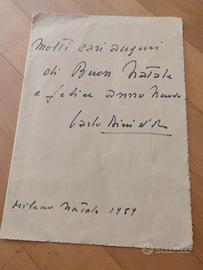 Molti cari auguri
di Buon Natale
e felice anno nuovo
Carlo
Milano Natale 1989
subito